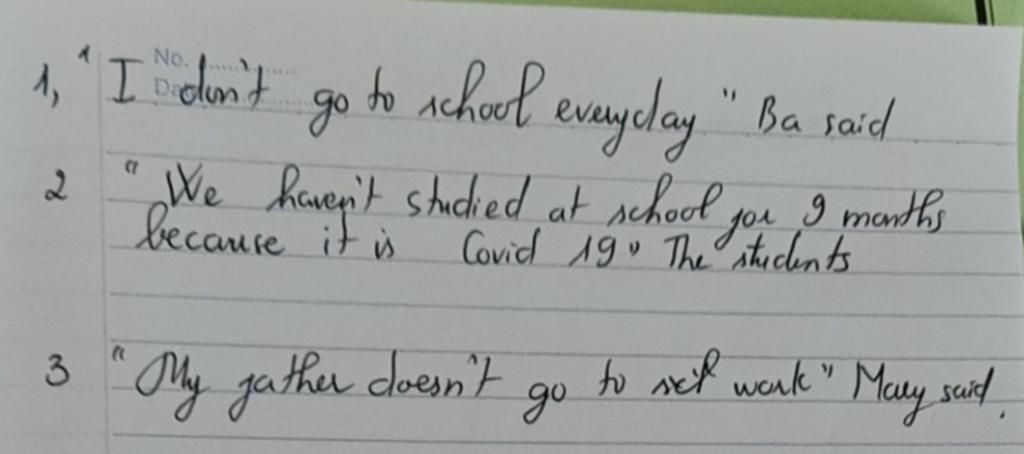 No.
Da
1, " I don't go to school everyday " Ba said
2 " We haven't studied at school for 9 months
because it is Covid 19" The students
3 " My father doesn't go to work" Mary said.